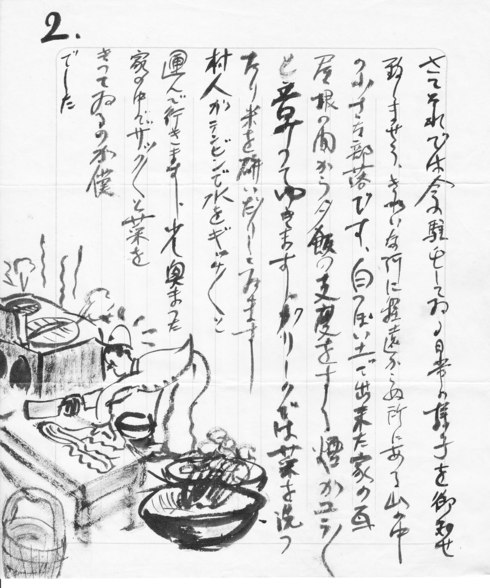 2.
さてそれでは今の駐屯してゐる日常の様子を御知せ
致しませう、きれいな河に程遠からぬ所にある山の中
の小さな部落です、白つぽい土で出来た家の瓦
屋根の間から夕飯の支度をする煙がユラ〱
と昇つてゆきます、クリークでは菜を洗つ
たり米を研いだりしてゐます
村人がテンビンで水をギッチ〱と
運んで行きます、少し奥まつた
家の中でザック〱と菜を
きつてゐるのが僕
でした